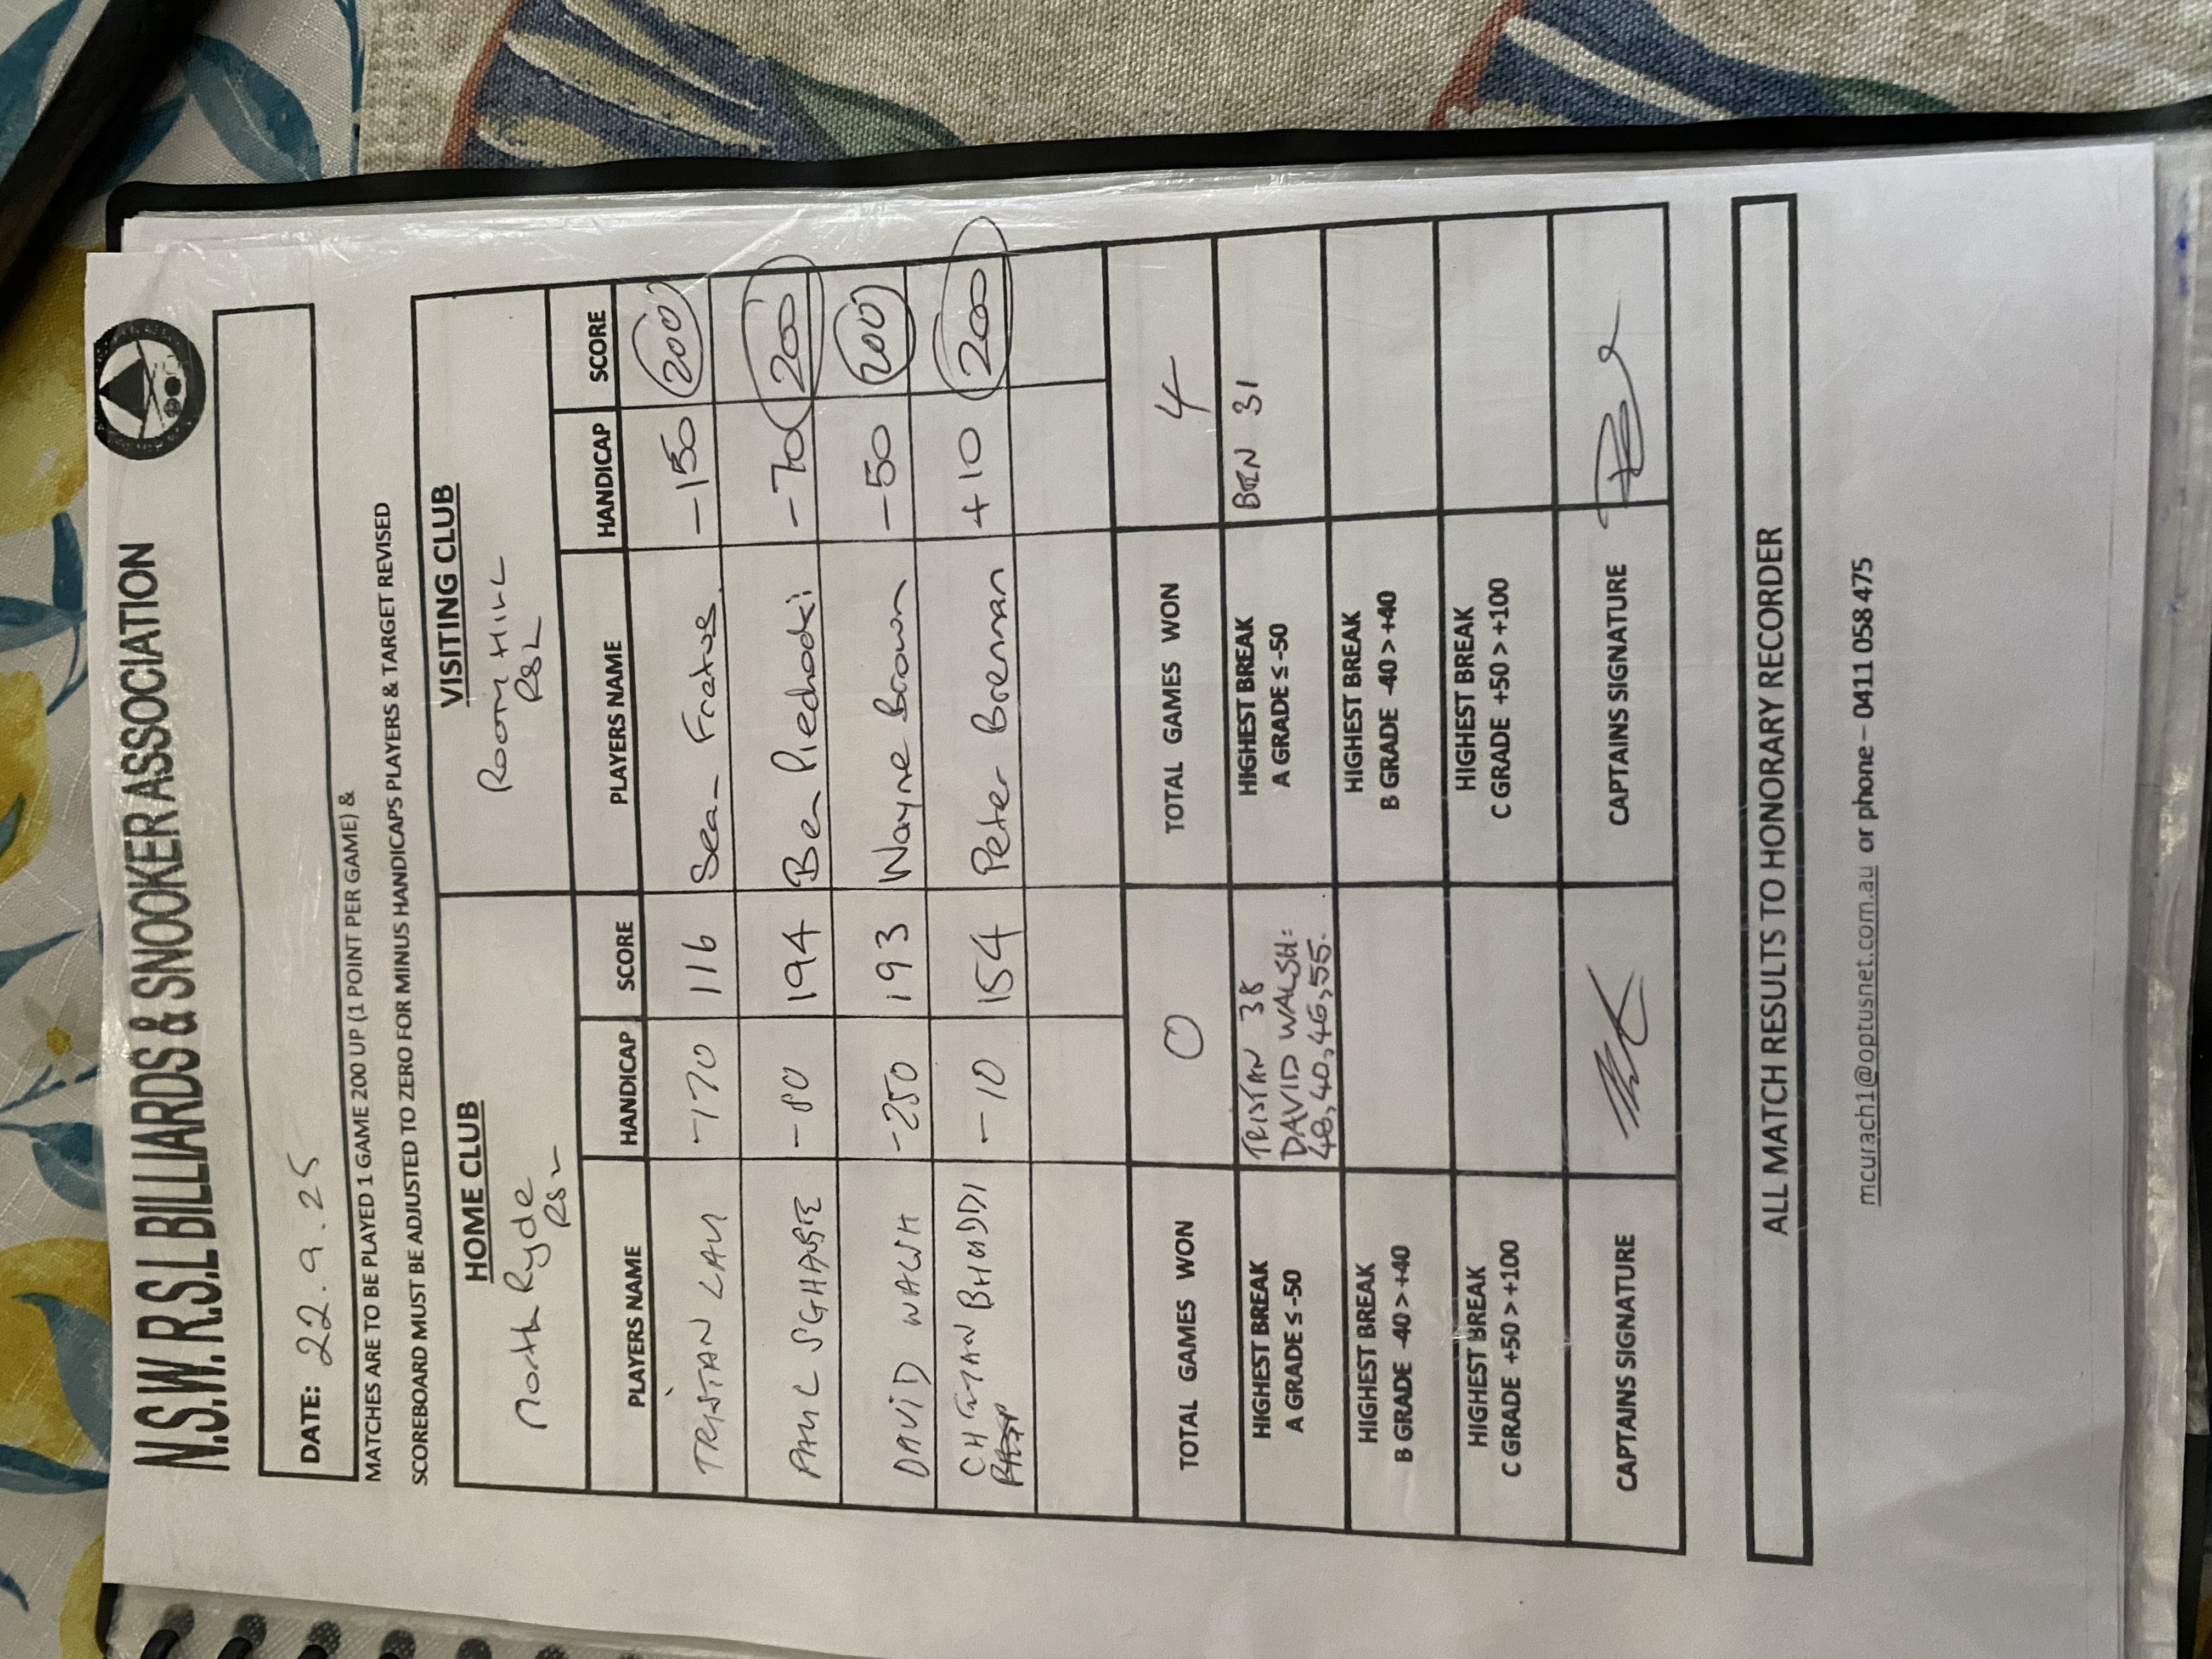 N.S.W. R.S.L BILLIARDS & SNOOKER ASSOCIATION
DATE: 22.9.25
MATCHES ARE TO BE PLAYED 1 GAME 200 UP (1 POINT PER GAME) &
SCOREBOARD MUST BE ADJUSTED TO ZERO FOR MINUS HANDICAPS PLAYERS & TARGET REVISED
HOME CLUB VISITING CLUB
North Ryde Rooty HILL
RSL RSL
PLAYERS NAME HANDICAP SCORE PLAYERS NAME HANDICAP SCORE
TRISTAN LAU -170 116 Sean -150 200
PAUL -80 194 Ben Piechocki -70 200
DAVID WALSH -250 193 Wayne Brown -50 200
CHETAN BHUDDI -10 154 Peter Brennan +10 200
TOTAL GAMES WON 0 TOTAL GAMES WON 4
HIGHEST BREAK TRISTAN 38 HIGHEST BREAK BEN 31
A GRADE ≤ -50 DAVID WALSH: A GRADE ≤ -50
48, 40, 46, 55.
HIGHEST BREAK HIGHEST BREAK
B GRADE -40 > +40 B GRADE -40 > +40
HIGHEST BREAK HIGHEST BREAK
C GRADE +50 > +100 C GRADE +50 > +100
CAPTAINS SIGNATURE CAPTAINS SIGNATURE
ALL MATCH RESULTS TO HONORARY RECORDER
mcurach1@optusnet.com.au or phone – 0411 058 475